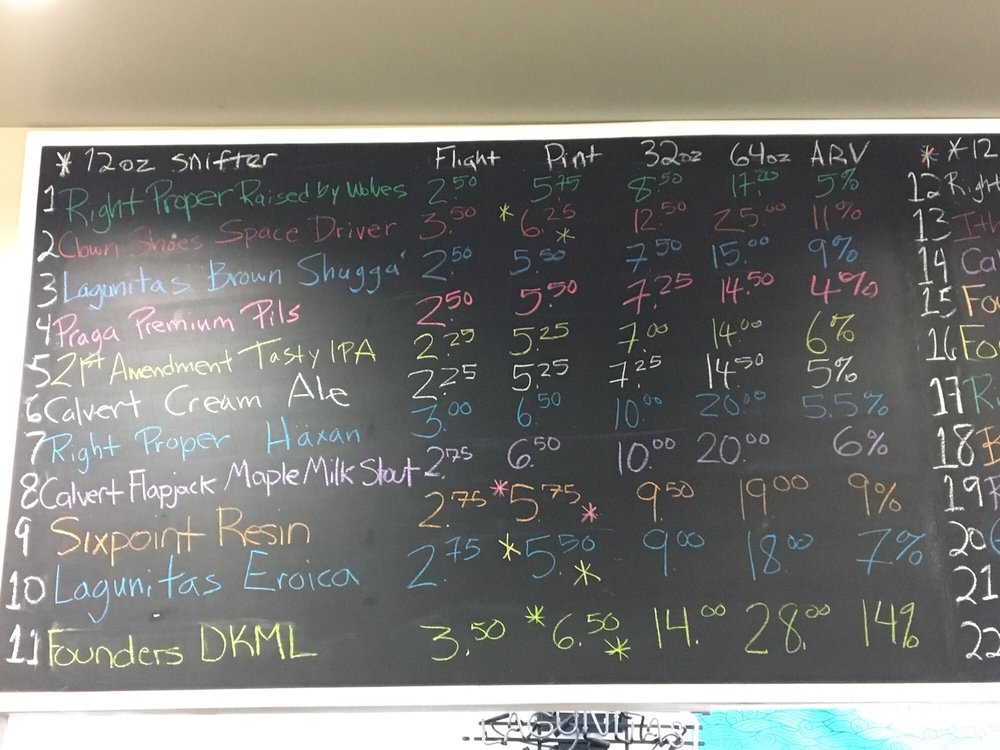 * 12oz snifter Flight Pint 32oz 64oz ABV * *12
1 Right Proper Raised by Wolves 2.50 5.75 8.50 17.00 5% 12 Right
2 Clown Shoes Space Driver 3.50 * 6.25 * 12.50 25.00 11% 13
3 Lagunitas Brown Shugga' 2.50 5.50 7.50 15.00 9% 14 Cal
4 Praga Premium Pils 2.50 5.50 7.25 14.50 4% 15 Fou
5 21st Amendment Tasty IPA 2.25 5.25 7.00 14.00 6% 16 Fou
6 Calvert Cream Ale 2.25 5.25 7.25 14.50 5% 17 R
7 Right Proper Häxan 3.00 6.50 10.00 20.00 5.5% 18
8 Calvert Flapjack Maple Milk Stout 2.75 6.50 10.00 20.00 6% 19
9 Sixpoint Resin 2.75 * 5.75 * 9.50 19.00 9% 20
10 Lagunitas Eroica 2.75 * 5.50 * 9.00 18.00 7% 21
11 Founders DKML 3.50 * 6.50 * 14.00 28.00 14% 22